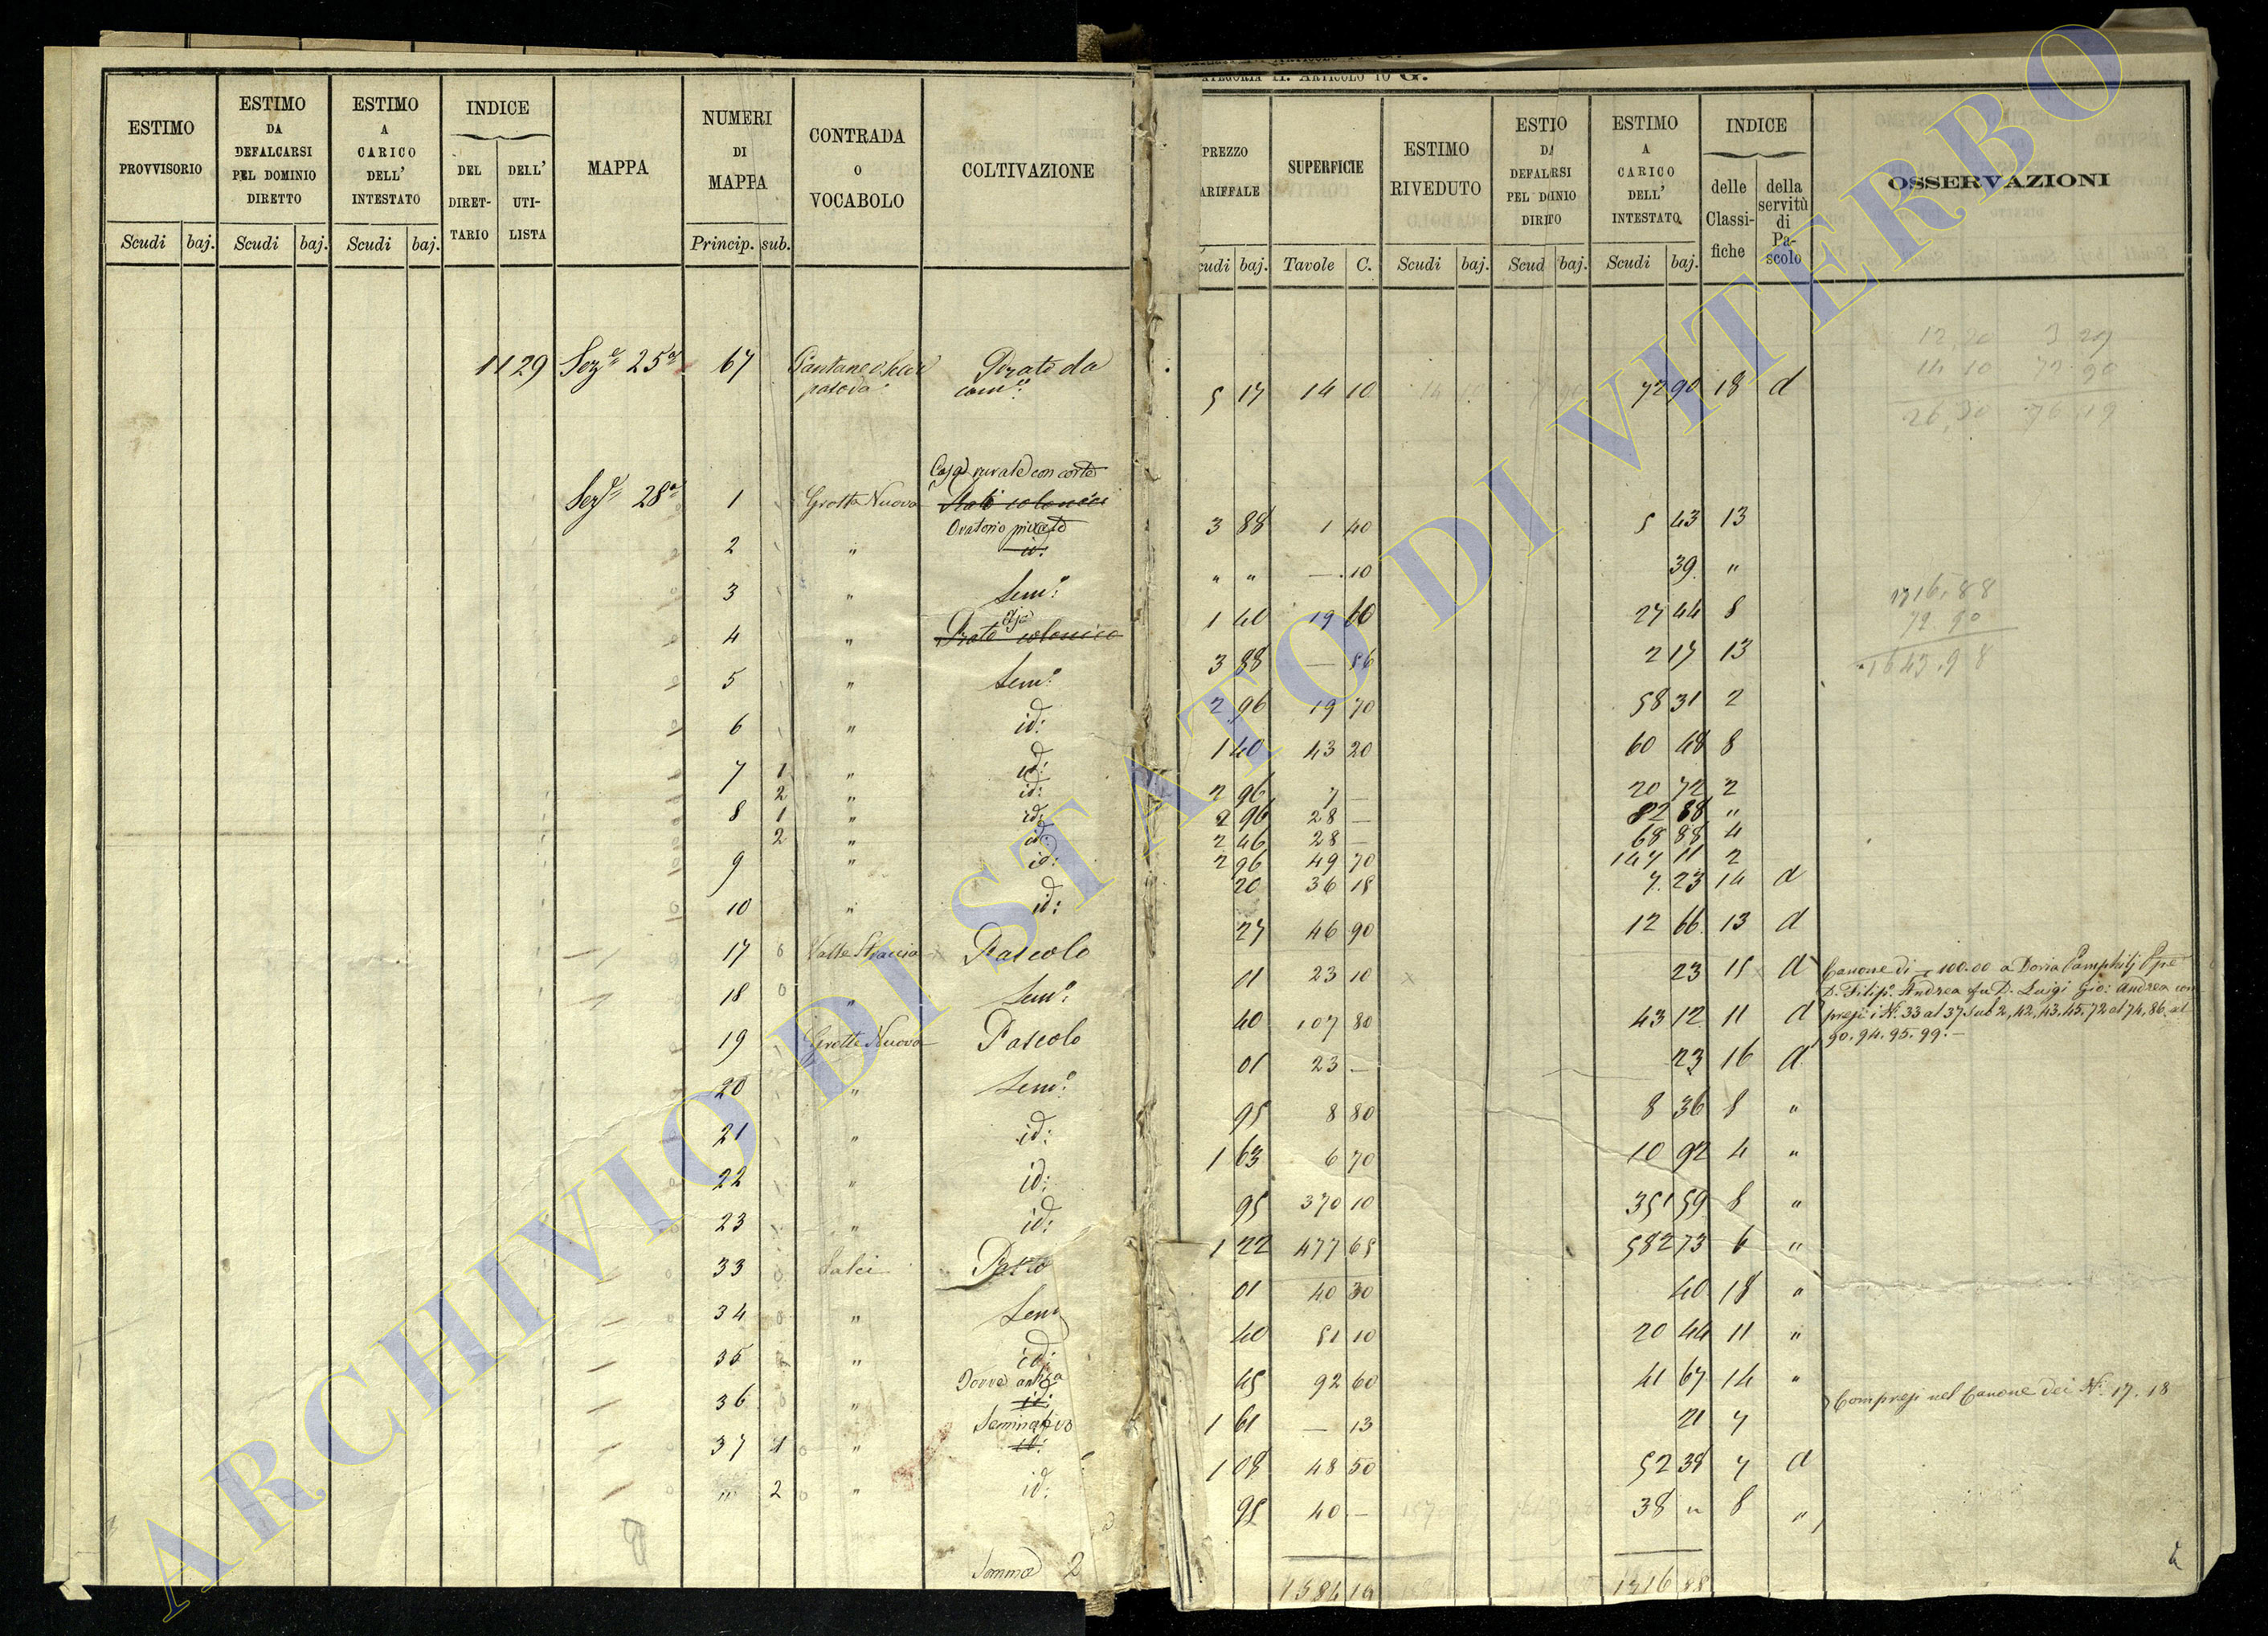 CATEGORIA II. ARTICOLO 10 G.
ESTIMO PROVVISORIO
ESTIMO DA DEFALCARSI PEL DOMINIO DIRETTO
ESTIMO A CARICO DELL' INTESTATO
INDICE
DEL DIRETTARIO
DELL' UTILISTA
MAPPA
NUMERI DI MAPPA
CONTRADA O VOCABOLO
COLTIVAZIONE
Scudi baj. Scudi baj. Scudi baj. Princip. sub.
PREZZO ARIFFALE
SUPERFICIE
ESTIMO RIVEDUTO
ESTIO DA DEFALRSI PEL DOINIO DIRTO
ESTIMO A CARICO DELL' INTESTATO
INDICE
delle Classifiche
della servitù di Pascolo
OSSERVAZIONI
cudi baj. Tavole C. Scudi baj. Scud baj. Scudi baj.
1129 Seze 25a 67 Prato da 5 17 14 10 72 90 18 d
Casa rurale con corte
Seze 28a 1 Grotta Nuova 3 88 1 40 5 43 13
Oratorio privato
2 " id: " " — .10 39 "
3 " Semo: 1 40 19 60 27 44 8
Aja
4 " Prato colonico 3 88 — 56 2 17 13
5 " Semo: 2 96 19 70 58 31 2
6 " id: 1 40 43 20 60 48 8
7 1 " id: 2 96 7 — 20 72 2
2 " id: 2 96 28 — 82 88 "
8 1 " id: 2 46 28 — 68 88 4
2 " id: 2 96 49 70 147 11 2
9 " id: 20 36 15 7 23 14 d
10 " id: 27 46 90 12 66 13 d
17 Valle Straccia Pascolo 01 23 10 23 15 d
18 " Semo: 40 107 80 43 12 11 d
19 Grotta Nuova Pascolo 01 23 — 23 16 d
20 " Semo: 95 8 80 8 36 8 "
21 " id: 1 63 6 70 10 92 4 "
22 " id: 95 370 10 351 59 8 "
23 " id: 1 22 477 65 582 73 6 "
33 Salci 01 40 30 40 18 "
34 " Sem 40 51 10 20 44 11 "
35 " id: 45 92 60 41 67 14 "
Torre antica
36 " id: 1 61 — 13 21 7
Seminativo
37 1 " id: 1 08 48 50 52 38 7 d
" 2 " id: 95 40 — 38 " 8 "
Somma 1584 19 1716 88
12,20 3 29
14 10 72 90
26,30 76 19
1716,88
72 90
1643,98
Canone di 100.00 a Doria Pamphilj Ppe
D. Filipo Andrea fu D. Luigi Gio: Andrea com
presi i No. 33 al 37 sub 2, 42, 43, 45, 72 al 74, 86 al
90. 94. 95. 99. —
Compresi nel Canone dei Ni. 17. 18
ARCHIVIO DI STATO DI VITERBO